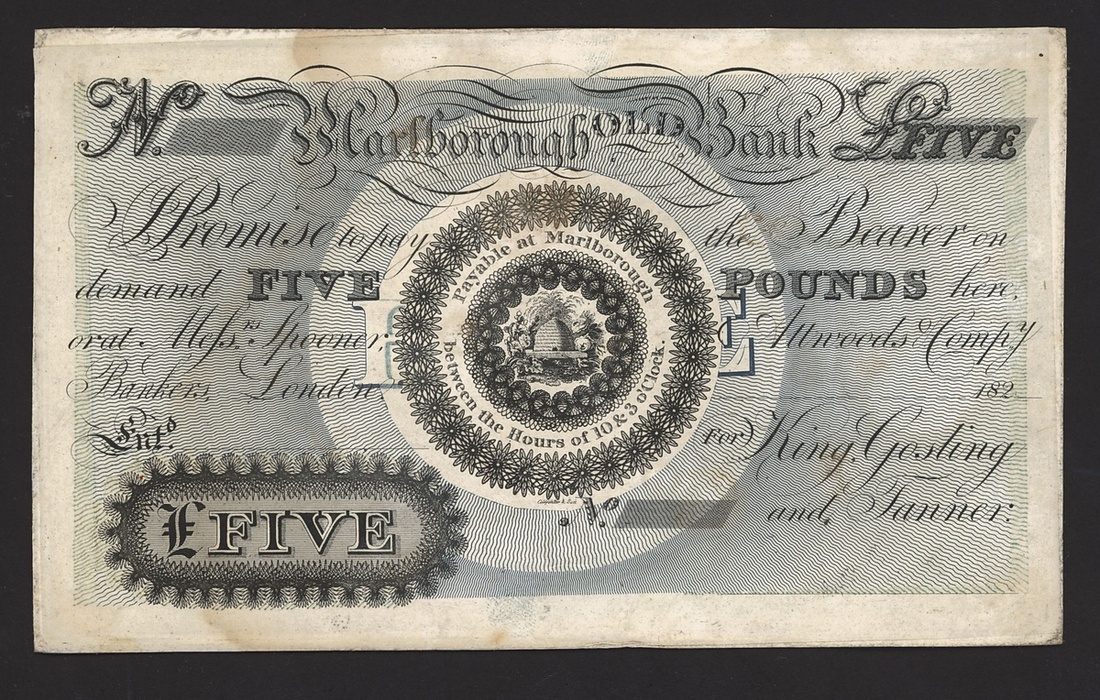 No Marlborough OLD Bank £FIVE
I Promise to pay the Bearer on
demand FIVE POUNDS here,
or at Messrs. Spooner, Attwoods & Compy
Bankers, London 182
Entd. For King, Gosling
and Tanner.
No
£FIVE
Payable at Marlborough
between the Hours of 10 & 3 o'Clock.